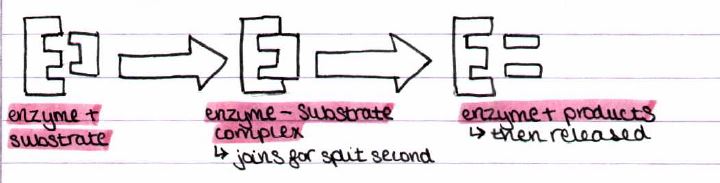 enzyme +
substrate
enzyme - substrate
complex
↳ joins for split second
enzyme + products
↳ then released